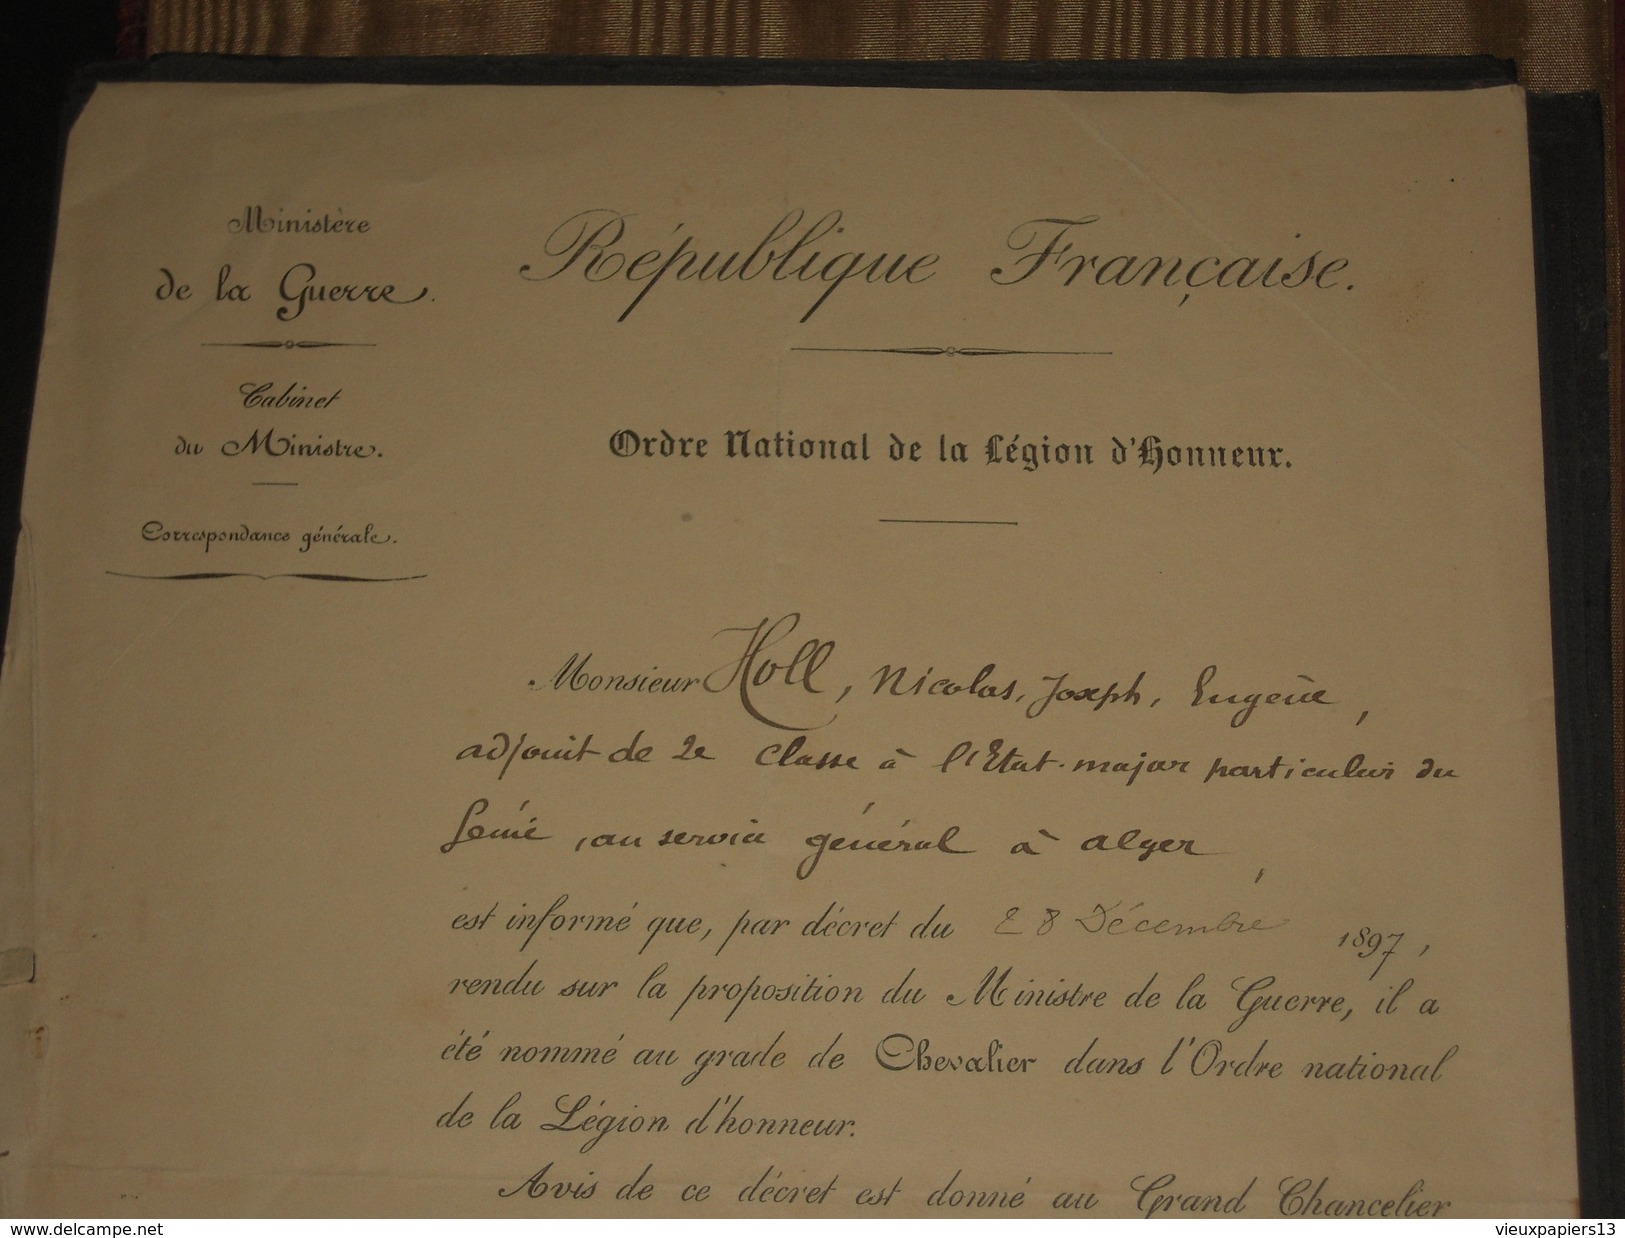 Ministère
de la Guerre.
Cabinet
du Ministre.
Correspondance générale.
République Française.
Ordre National de la Légion d'Honneur.
Monsieur Holl, Nicolas, Joseph, Eugène,
adjoint de 2e classe à l'Etat-major particulier du
Génie, au service général à Alger,
est informé que, par décret du 28 Décembre 1897,
rendu sur la proposition du Ministre de la Guerre, il a
été nommé au grade de Chevalier dans l'Ordre national
de la Légion d'honneur.
Avis de ce décret est donné au Grand Chancelier
www.delcampe.net
vieuxpapiers13